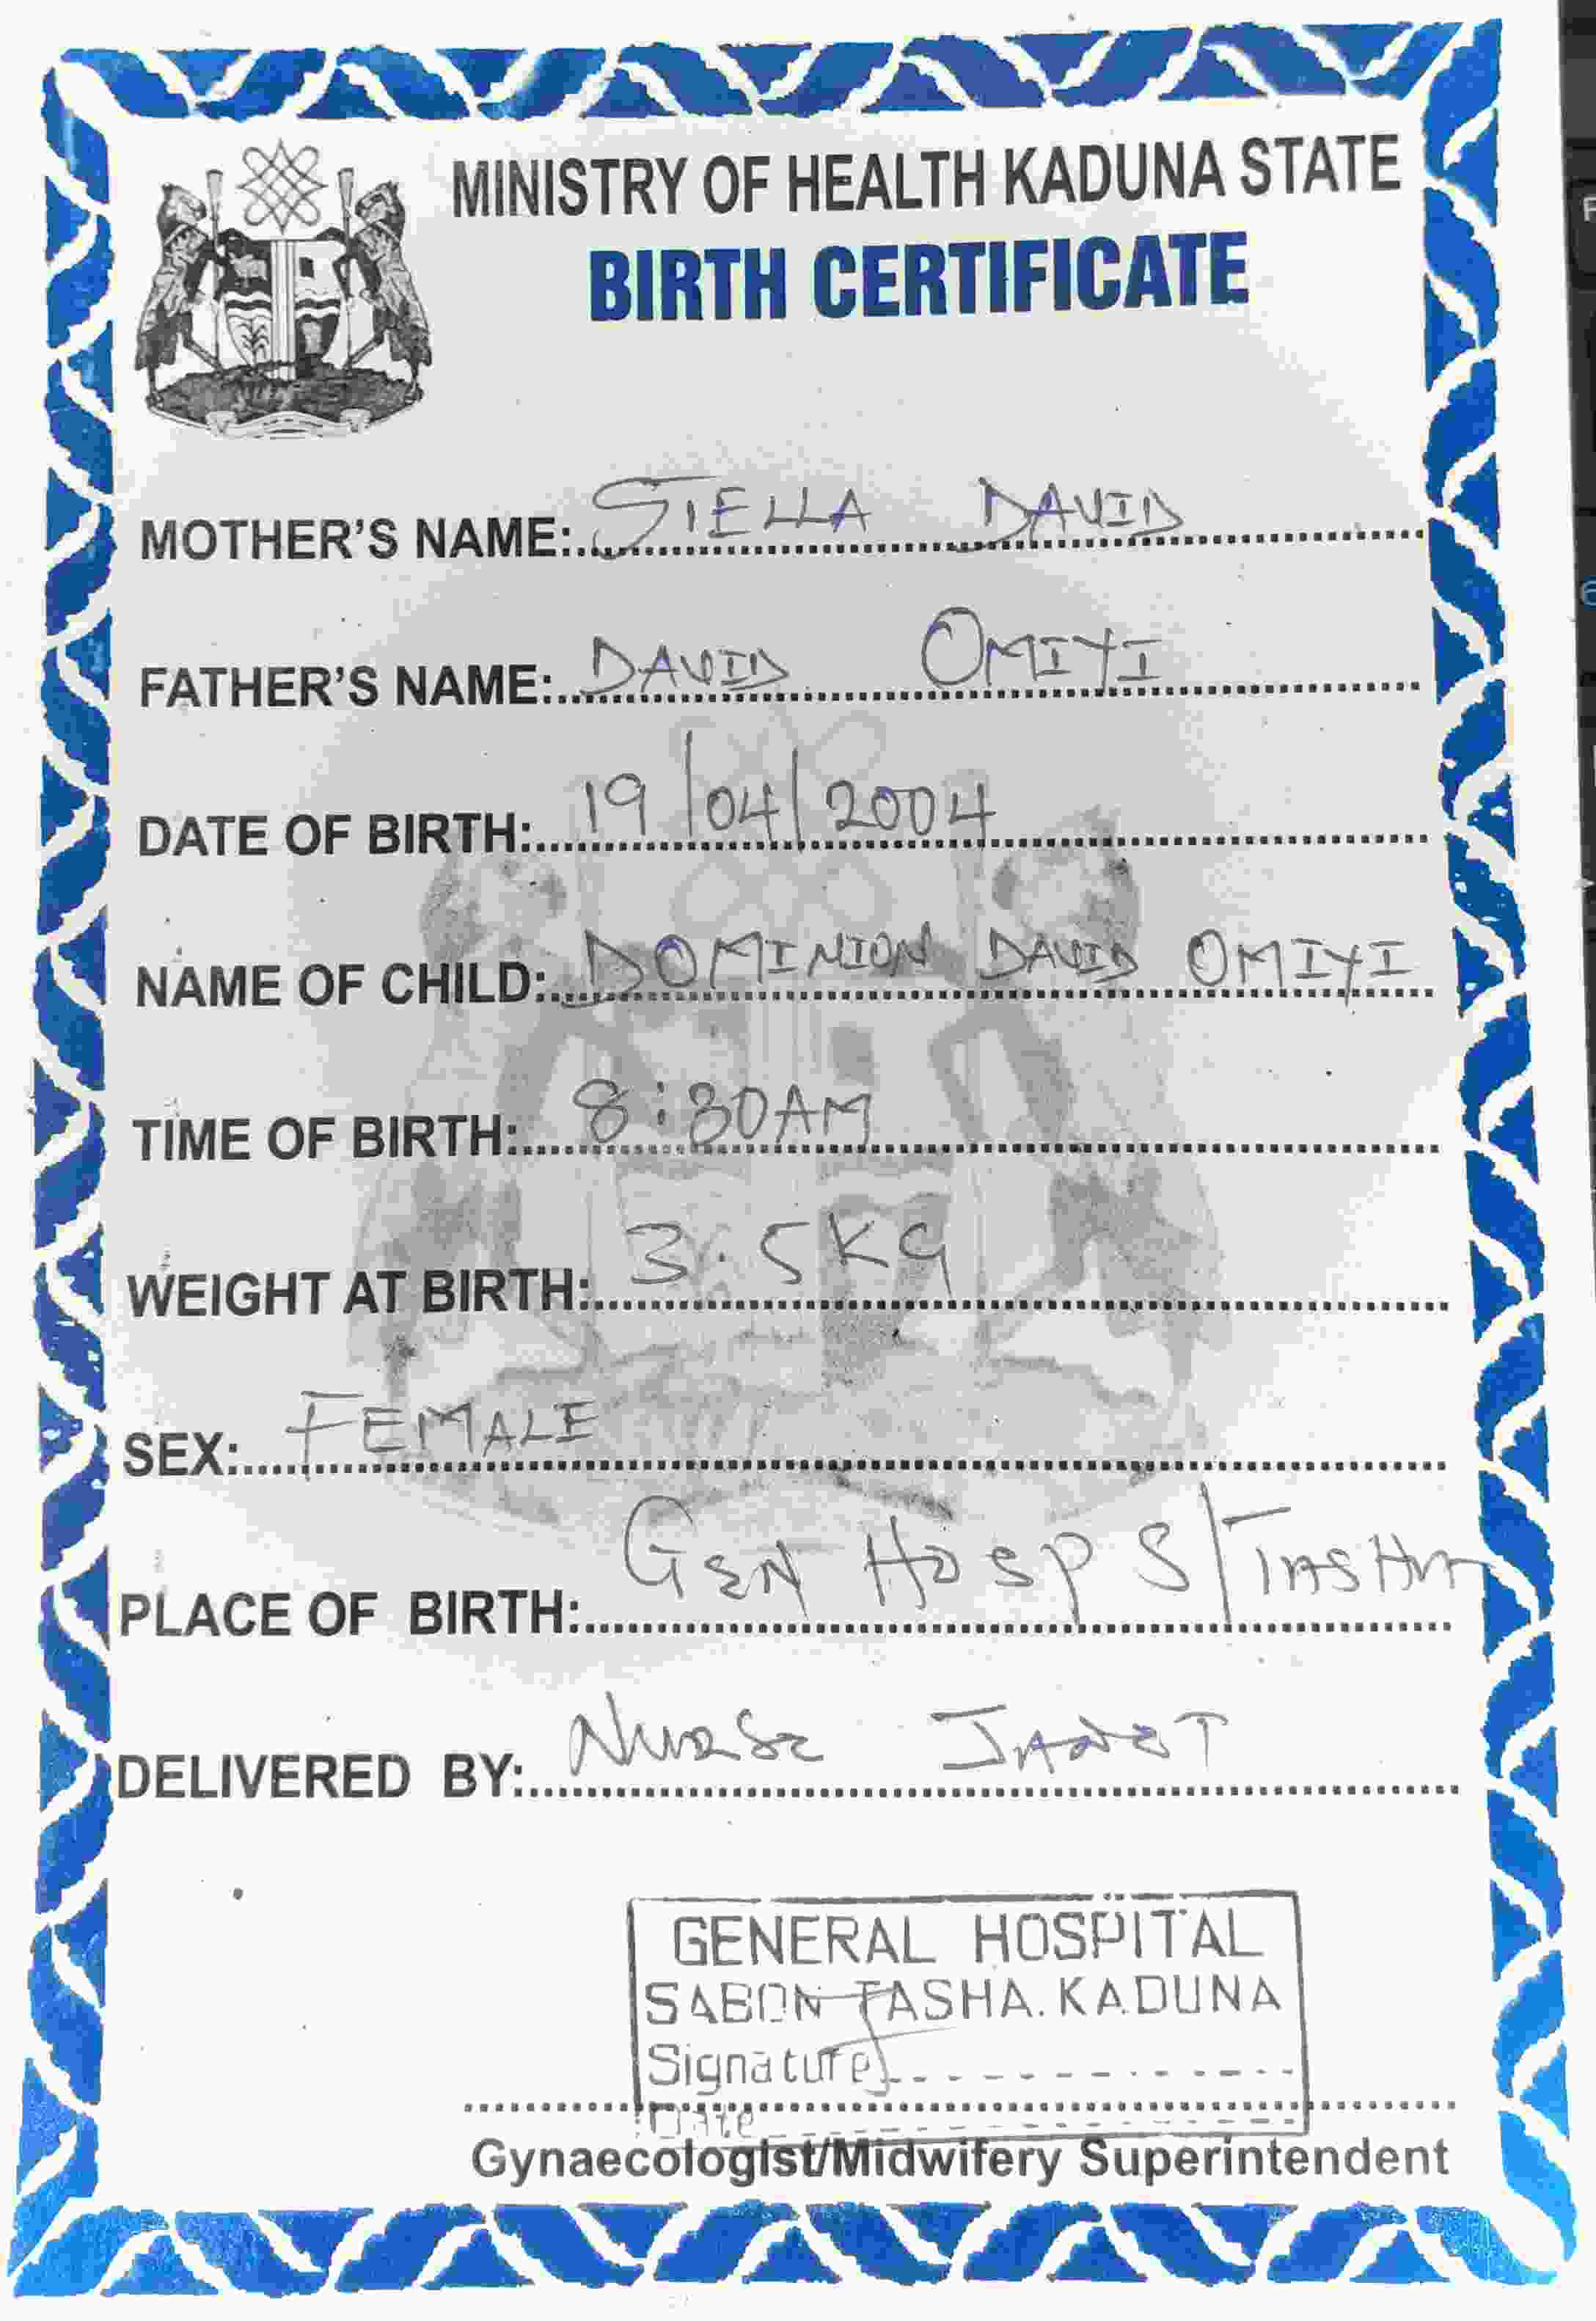 MINISTRY OF HEALTH KADUNA STATE
BIRTH CERTIFICATE
MOTHER'S NAME: STELLA DAVID
FATHER'S NAME: DAVID OMIYI
DATE OF BIRTH: 19/04/2004
NAME OF CHILD: DOMINION DAVID OMIYI
TIME OF BIRTH: 8:30AM
WEIGHT AT BIRTH: 3.5KG
SEX: FEMALE
PLACE OF BIRTH: GEN HOSP S/TASHA
DELIVERED BY: NURSE JANET
GENERAL HOSPITAL
SABON TASHA. KADUNA
Signature
Date
Gynaecologist/Midwifery Superintendent